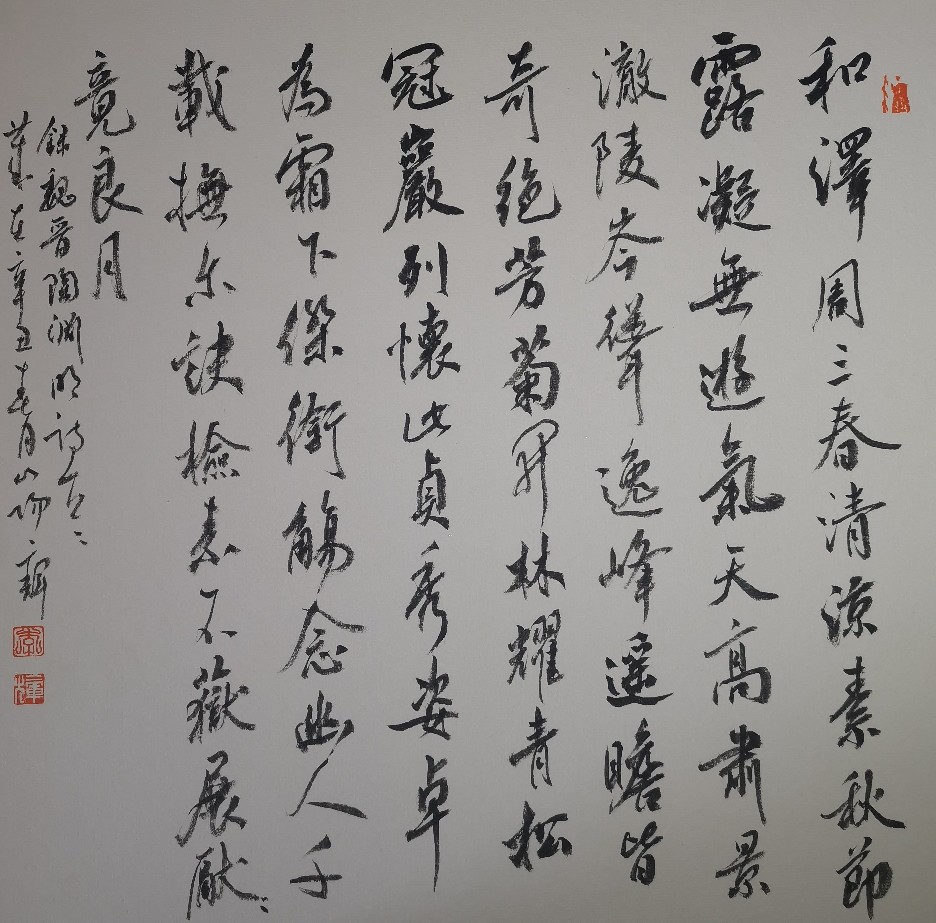 和澤周三春清涼素秋節
露凝無遊氣天高肅景
澈陵岑聳逸峰遥瞻皆
奇絕芳菊開林耀青松
冠巖列懷此貞秀姿卓
為霜下傑銜觴念幽人千
載撫尔訣檢素不獲展厭〻
竟良月
録魏晋陶渊明詩
歲在辛丑春月山